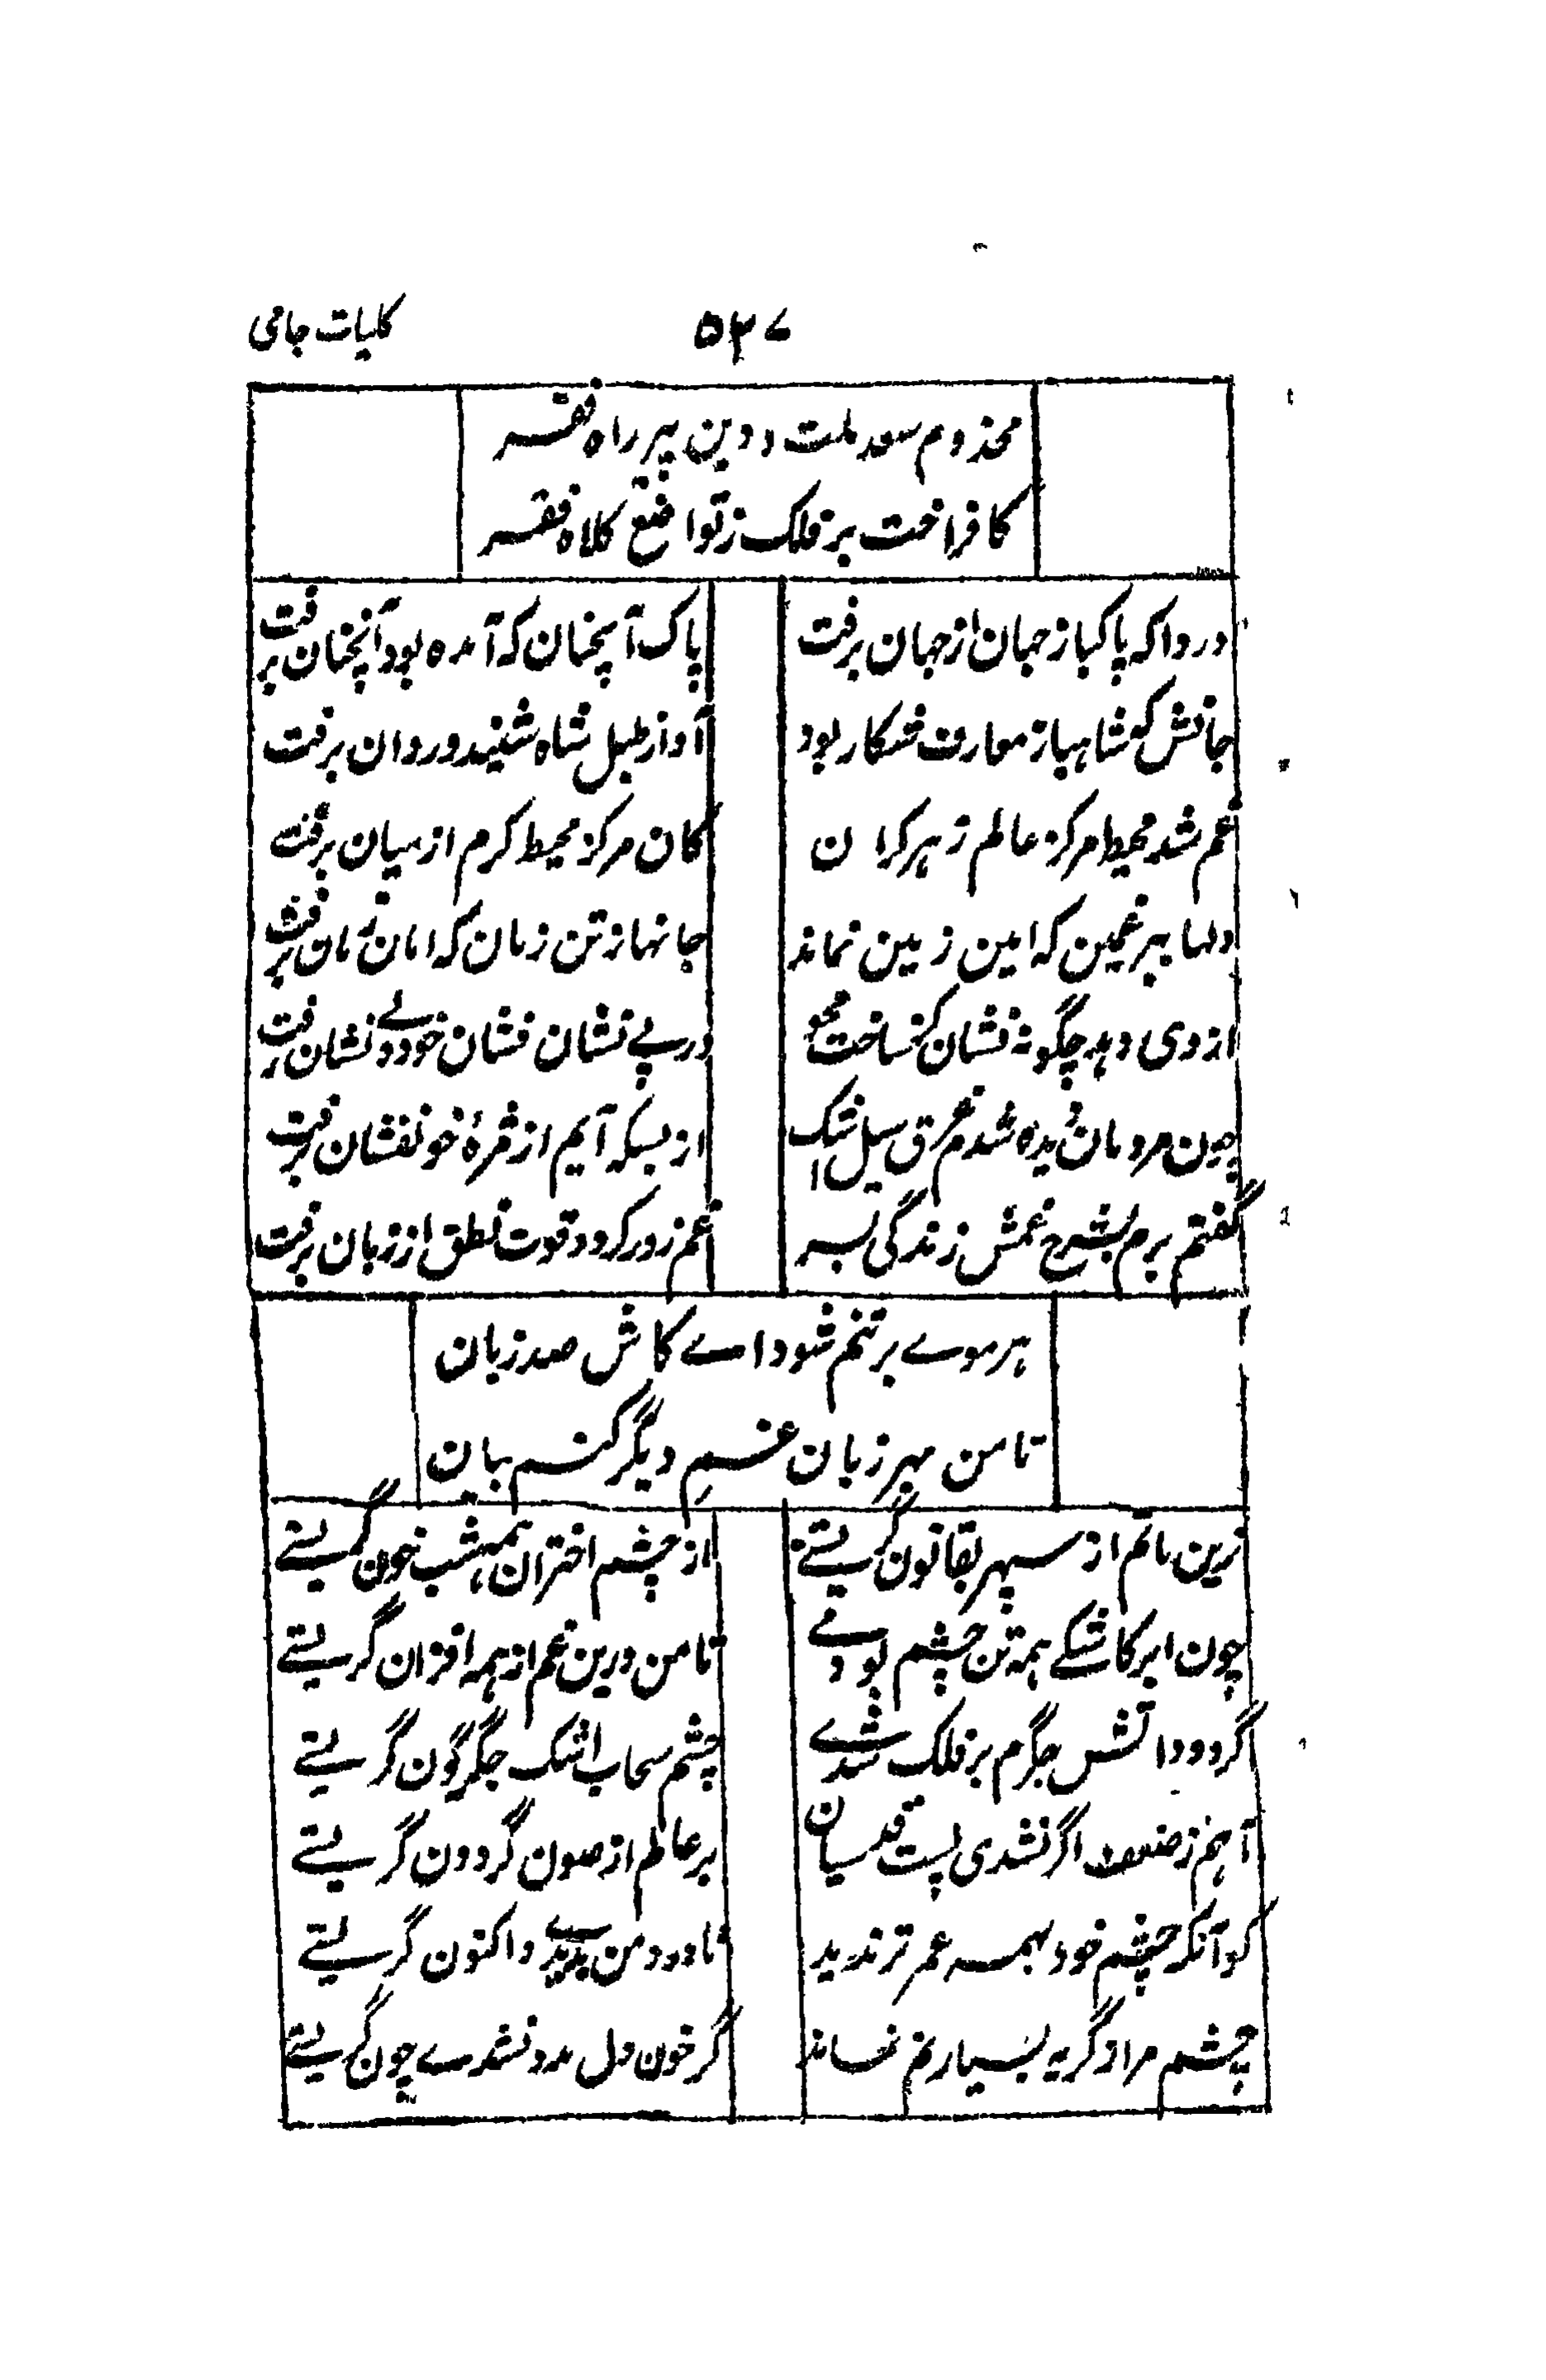 کلیات جامی
۵۳۷
مخدوم سعد ملت و دین پیر راه فقر
کافراخت بر فلک ز تواضع کلاه فقر
دردا که پاکباز جهان از جهان برفت
پاک آنچنان که آمده بود آنچنان برفت
جانش که شاهباز معارف شکار بود
آواز طبل شاه شنید و روان برفت
غم شد محیط مرکز عالم ز هر کران
کان مرکز محیط کرم از میان برفت
دلها ببر غمین که امین زمین نماند
جانها ز تن زمان که امان زمان برفت
از وی دهد چگونه نشان کز ساخت محو
در بے نشان نشان خودی و نشان برفت
چون مردمان دیده شدم غرق سیل اشک
از بسکه آبم از مژهٔ خونفشان برفت
گفتم برم بشرح غمش زندگی بسر
غم زور کرد و قوت نطق از زبان برفت
هر موے بر تنم شود اے کاش صد زبان
تا من بهر زبان غم دیگر کنم بیان
زین ماتم از سپهر بقانون گریستے
از چشم اختران همه شب خون گریستے
چون ابر کاشکے همه تن چشم بودمے
تا من درین غم از همه افزون گریستے
گر دود آتش جگرم بر فلک شدے
چشم سحاب اشک جگرگون گریستے
آهم ز ضعف اگر نشدی پست قدسیان
بر عالم از صون گردون گریستے
کو آنکه چشم خود بهمه عمر تر ندید
تا درد من بدیدے و اکنون گریستے
چشم مرا ز گریه بسیار نم نماند
گر خون دل مدد نشدے چون گریستے